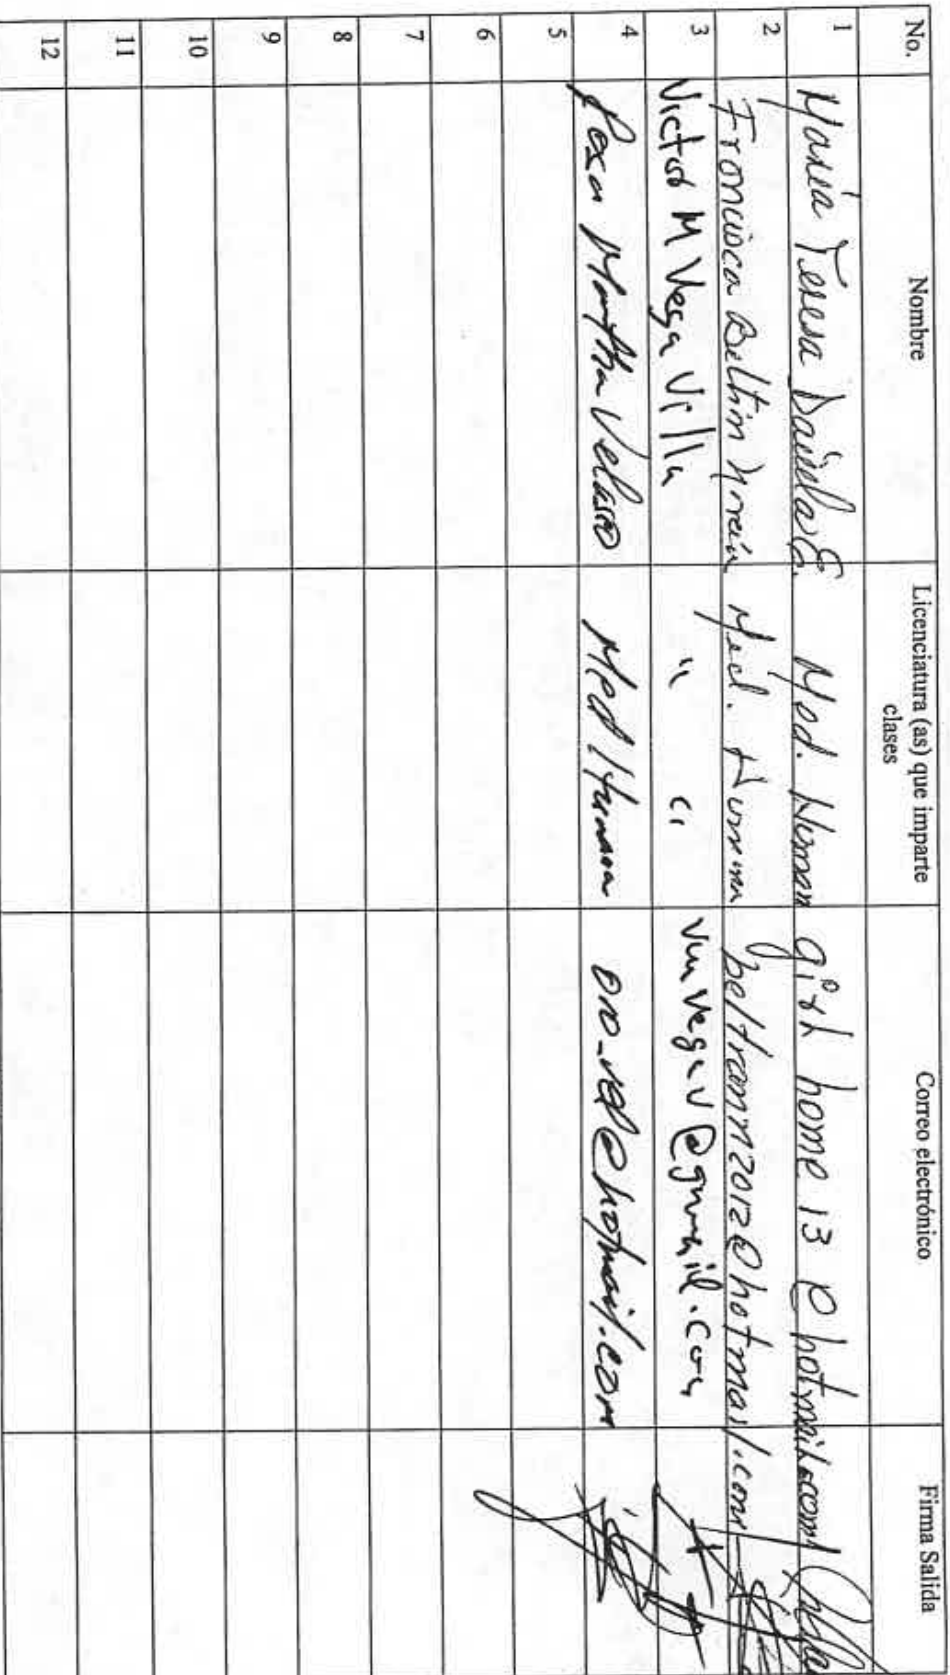 No. Nombre Licenciatura (as) que imparte clases Correo electrónico Firma Salida
1 María Teresa Dávila E. Med. Human girl home 13 @ hotmail.com
2 Francisca Beltrán Morán Med. Humana beltramn2012@hotmail.com
3 Victor M Vega Villa " " vmvegav@gmail.com
4 Rosa Martha Velasco Med Humana oro_vel@hotmail.com
5
6
7
8
9
10
11
12